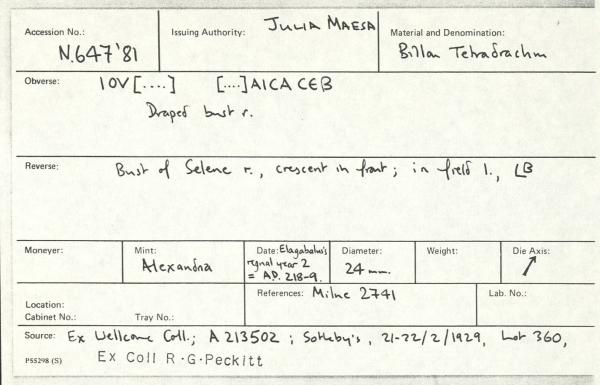 Accession No.: N.647'81
Issuing Authority: JULIA MAESA
Material and Denomination: Billon Tetradrachm
Obverse: IOV[....] [....]AICA CEB
Draped bust r.
Reverse: Bust of Selene r., crescent in front; in field l., LB
Moneyer:
Mint: Alexandria
Date: Elagabalus's regnal year 2 = A.D. 218-9.
Diameter: 24 mm.
Weight:
Die Axis: ↗
Location:
Cabinet No.: Tray No.:
References: Milne 2741
Lab. No.:
Source: Ex Wellcome Coll.; A 213502; Sotheby's, 21-22/2/1929, Lot 360,
P55298 (S) Ex Coll R.G.Peckitt